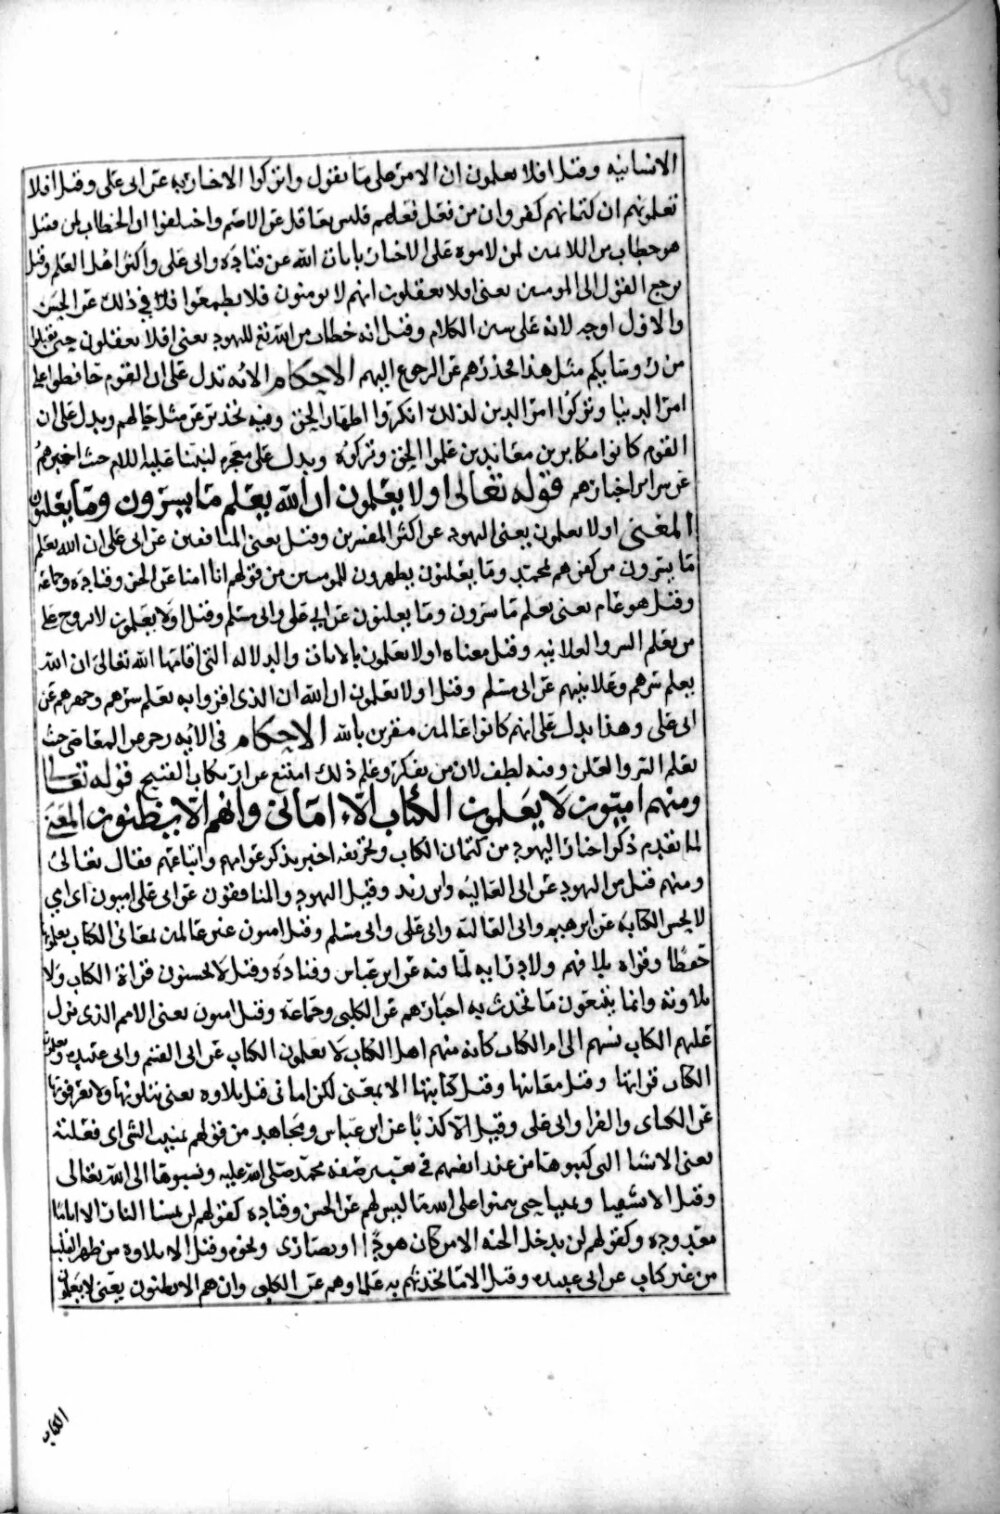 الانسانيه وقيل افلا تعلمون ان الامر على ما نقول واتركوا الاخبار به عن ابى على وقيل افلا
تعلمونهم ان كتمانهم كفر وان من فعل فعلهم فليس بعاقل عن الاصم واختلفوا ان الخطاب لمن فقيل
هو خطاب من اللائمين لمن لاموه على الاخبار بامان الله عن قتاده وابى على واكثر اهل العلم وقيل
يرجع القول الى المومنين يعنى افلا تعقلون انهم لا يومنون فلا تطمعوا فى ذلك عن الحسن
والاول اوجه لانه على سنن الكلام وقيل انه خطاب من الله تع لليهود يعنى افلا تعقلون حتى
من روسايكم مثل هذا محذرهم عن الرجوع اليهم الاحكام الايه تدل على ان القوم حافظوا على
امر الدنيا وتركوا امر الدين لذلك انكروا اظهار الحق وفيه تحذير عن مثل حالهم ويدل على ان
القوم كانوا مكابرين معاندين علموا الحق وتركوه ويدل على معجزه لنبينا عليه السلام حيث اخبرهم
عن سراير اخبارهم قوله تعالى اولا يعلمون ان الله يعلم ما يسرون وما يعلنون
المعنى اولا يعلمون يعنى اليهود عن اكثر المفسرين وقيل يعنى المنافقين عن ابى على ان الله يعلم
ما يسرون من كفرهم لمحمد وما يعلنون يظهرون للمومنين من قولهم انا امنا عن الحسن وقتاده وجماعه
وقيل هو عام يعنى يعلم ما يسرون وما يعلنون عن ابى على وابى مسلم وقيل اولا يعلمون لا يروح على
من يعلم السر والعلانيه وقيل معناه اولا يعلمون بالايات والدلاله التى اقامها الله تعالى ان الله
يعلم سرهم وعلانيتهم عن ابى مسلم وقيل اولا يعلمون ان الله ان الذى اقروا به يعلم سرهم وجهرهم عن
ابى على وهذا يدل على انهم كانوا عالمين مقرين بالله الاحكام فى الايه زجر من المعاصى حيث
يعلم السر والعلن وفيه لطف لان من تفكر وعلم ذلك امتنع عن ارتكاب القبيح قوله تعالى
ومنهم اميون لا يعلمون الكتاب الا امانى وان هم الا يظنون المعنى
لما تقدم ذكر احبار اليهود من كتمان الكتاب وتحريفه اخبر بذكر عوامهم واتباعهم فقال تعالى
ومنهم قيل من اليهود عن ابى العاليه وابن زيد وقيل اليهود والمنافقون عن ابى على اميون اى
لا يحسن الكتابه عن ابرهيم وابى العاليه وابى على وابى مسلم وقيل اميون غير عالمين بمعانى الكتاب يعلمونها
حفظا وقراه بلا فهم ولا درايه لما فيه عن ابن عباس وقتاده وقيل لا يحسنون قراة الكتاب ولا
تلاوته وانما يقنعون ما تحدث به احبارهم عن الكلبى وجماعه وقيل اميون يعنى الامم الذى نزل
عليهم الكتاب نسبهم الى ام الكتاب كانه منهم اهل الكتاب لا يعلمون الكتاب عن ابى القسم وابى عبيده
الكتاب قراتها وقيل معانيها وقيل كتابتها الا بمعنى لكن امانى قيل تلاوه يعنى يتلونها ولا يعرفونها
عن الكساى والفرا وابى على وقيل الا كذبا عن ابن عباس ومجاهد من قولهم تمنيت الشى اى فعلته
يعنى الاشيا التى كتبوها من عند انفسهم فى تغيير صفه محمد صلى الله عليه ونسبوها الى الله تعالى
وقيل الا تشهيا وتمنيا حتى يتمنوا على الله ما ليس لهم عن الحسن وقتاده كقولهم لن تمسنا النار الا اياما
معدوده وكقولهم لن يدخل الجنه الا من كان هودا او نصارى ونحوه وقيل الا تلاوه من ظهر القلب
من غير كتاب عن ابى عبيده وقيل الا ما تحدثهم به علماوهم عن الكلبى وان هم الا يظنون يعنى لا يعلمون
الكتاب